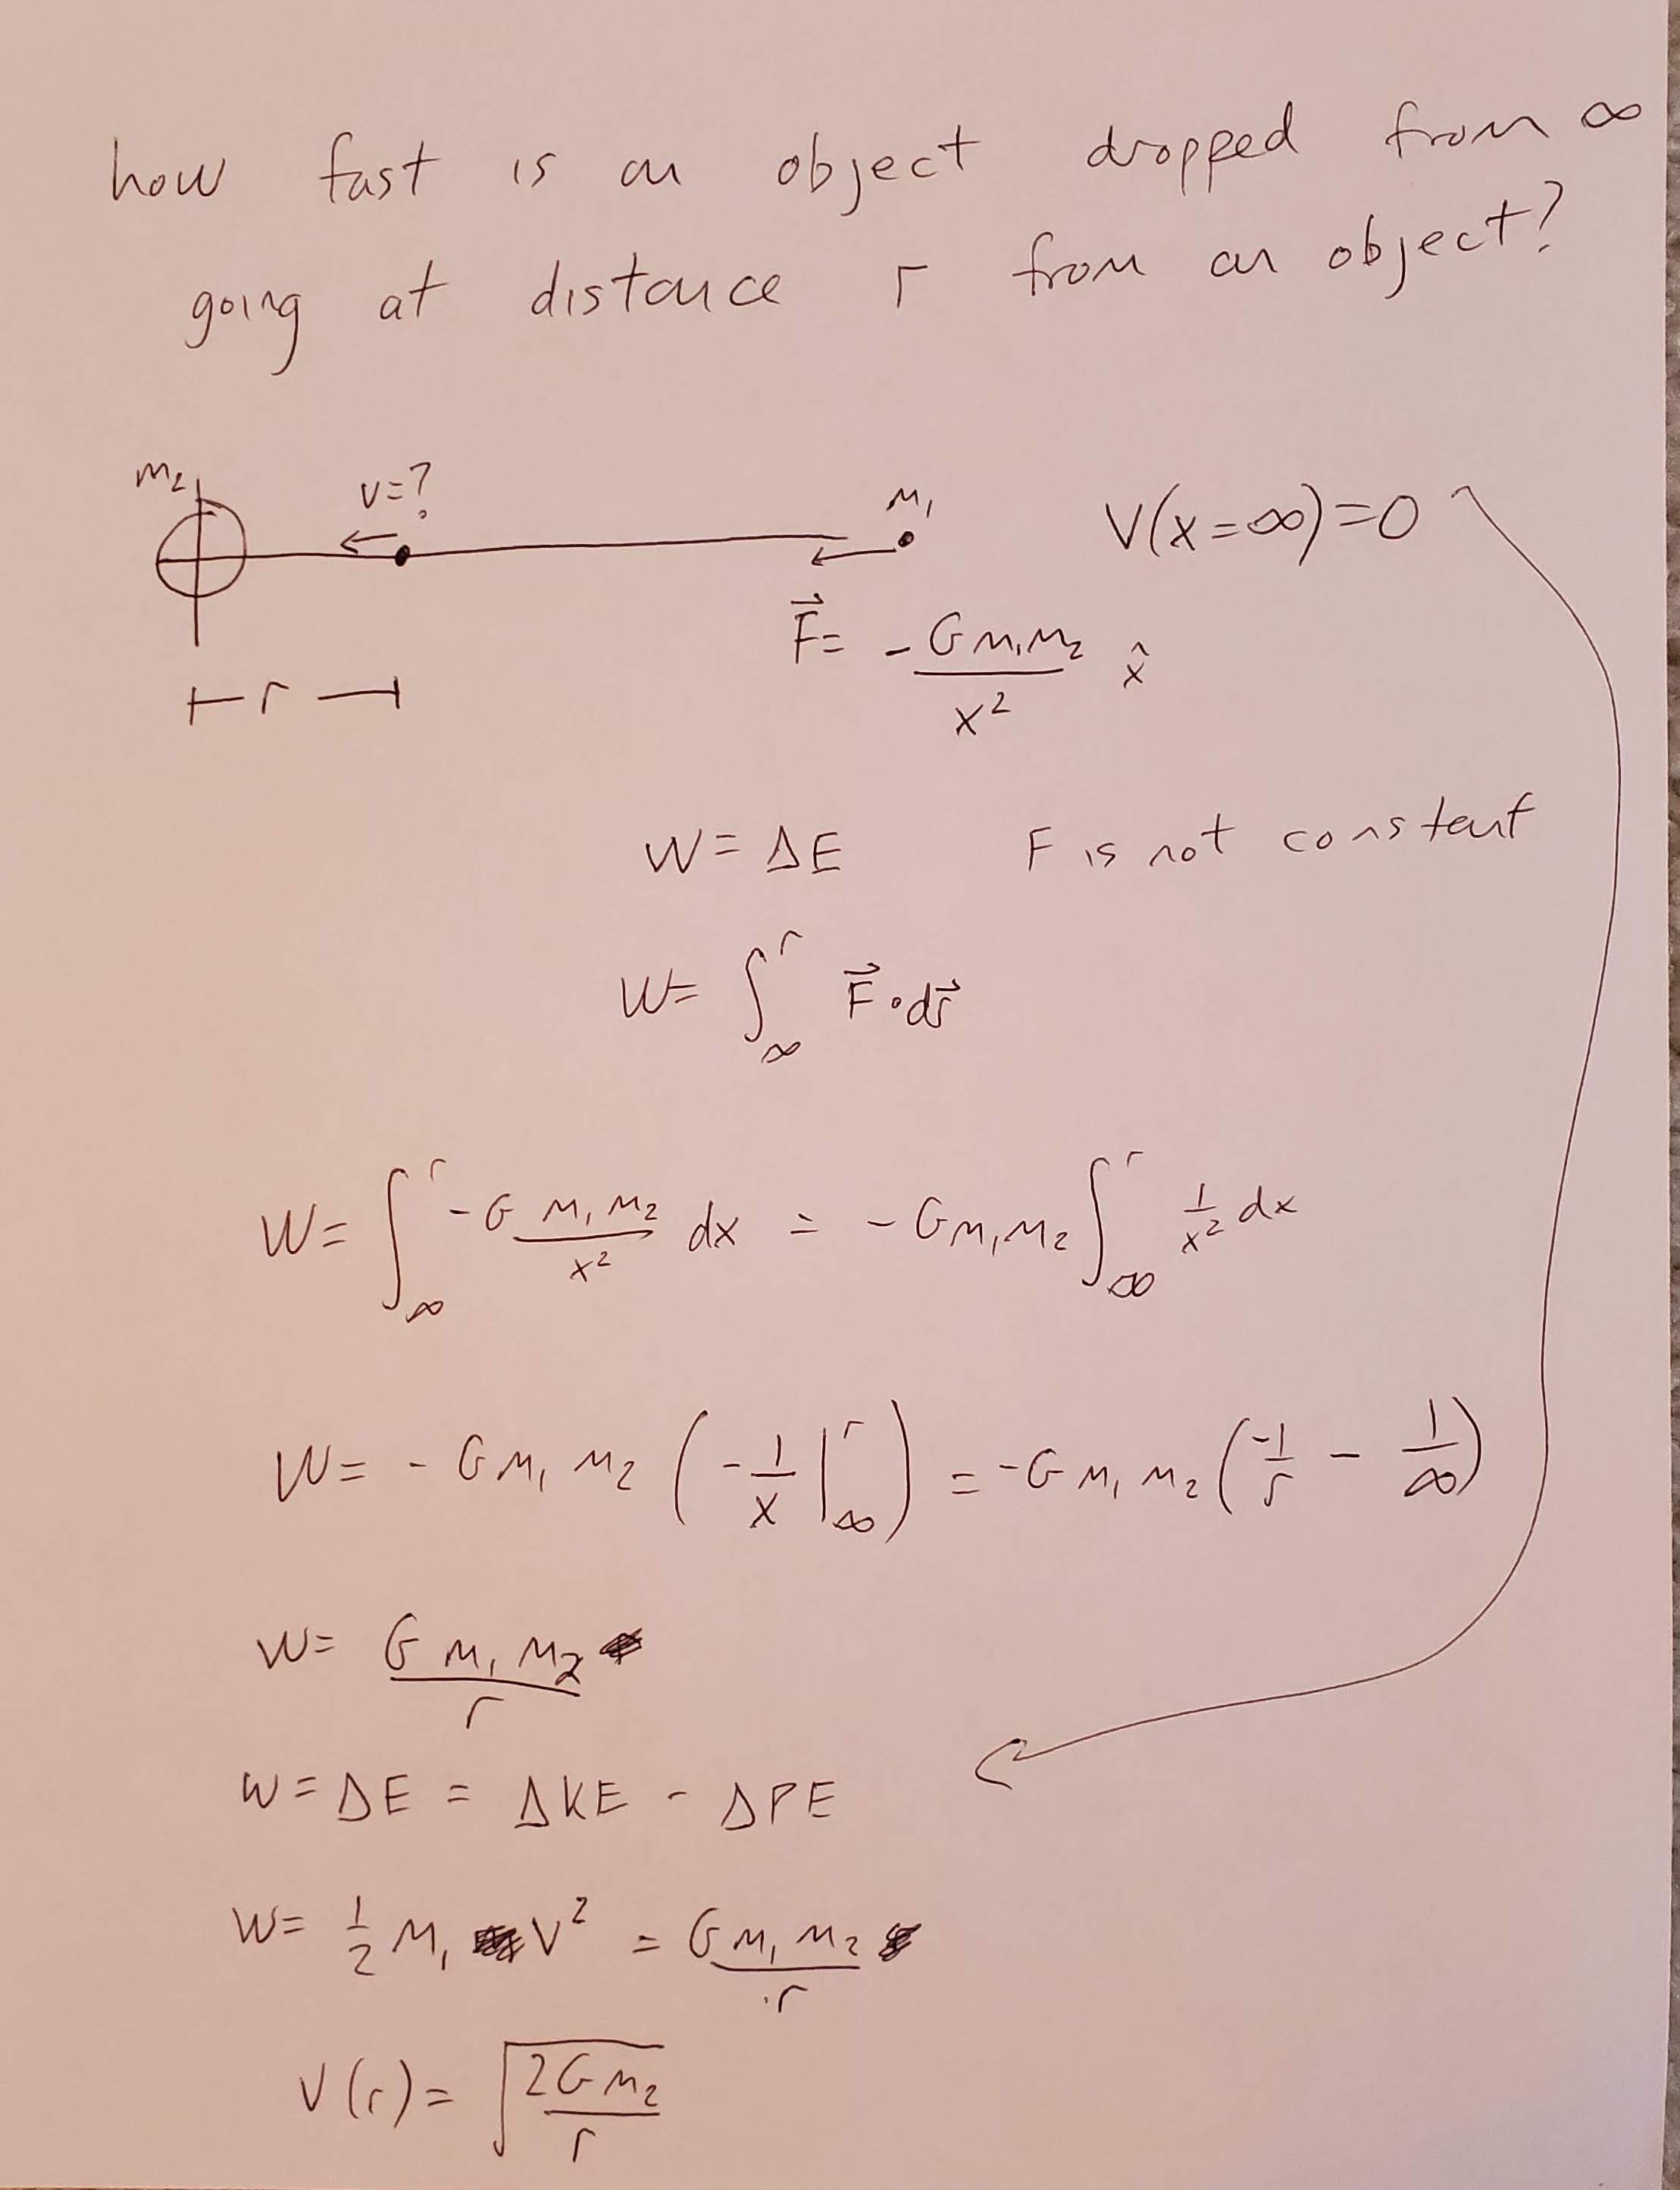 how fast is an object dropped from ∞
going at distance r from an object?
m₂ v=? m₁ V(x=∞)=0
F⃗= -Gm₁m₂/x² x̂
r
W=ΔE F is not constant
W= ∫_∞^r F⃗·dr⃗
W= ∫_∞^r -G m₁m₂/x² dx = -Gm₁m₂ ∫_∞^r 1/x² dx
W= -Gm₁m₂ (-1/x |_∞^r) = -Gm₁m₂ (-1/r - 1/∞)
W= Gm₁m₂/r
W=ΔE = ΔKE - ΔPE
W= 1/2 m₁ V² = Gm₁m₂/r
V(r)= √(2Gm₂/r)